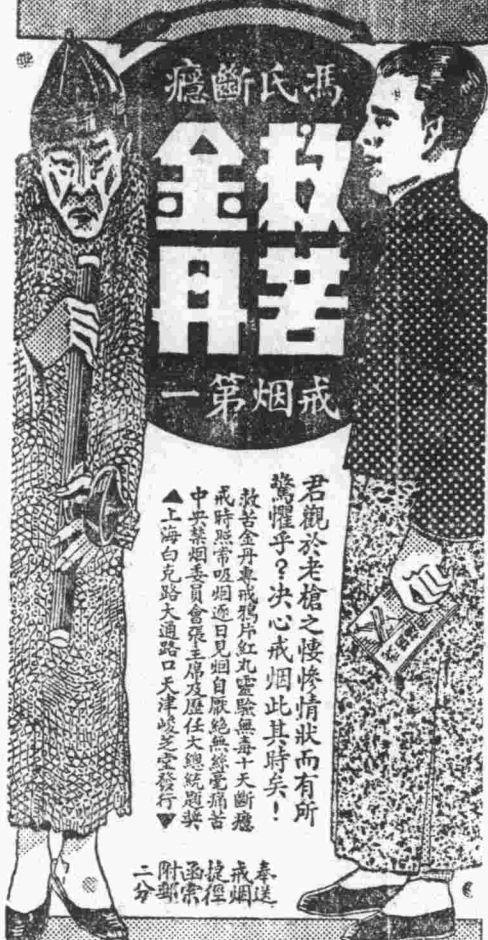 馮氏斷癮
救苦
金丹
戒烟第一
君觀於老槍之悽慘情狀而有所
驚懼乎？決心戒烟此其時矣！
救苦金丹專戒鴉片紅丸靈驗無毒十天斷癮
戒時照常吸烟逐日見烟自厭絕無絲毫痛苦
中央禁烟委員會張主席及歷任大總統題奬
▲上海白克路大通路口天津峻芝堂發行▼
奉送
戒烟
捷徑
函索
附郵
二分